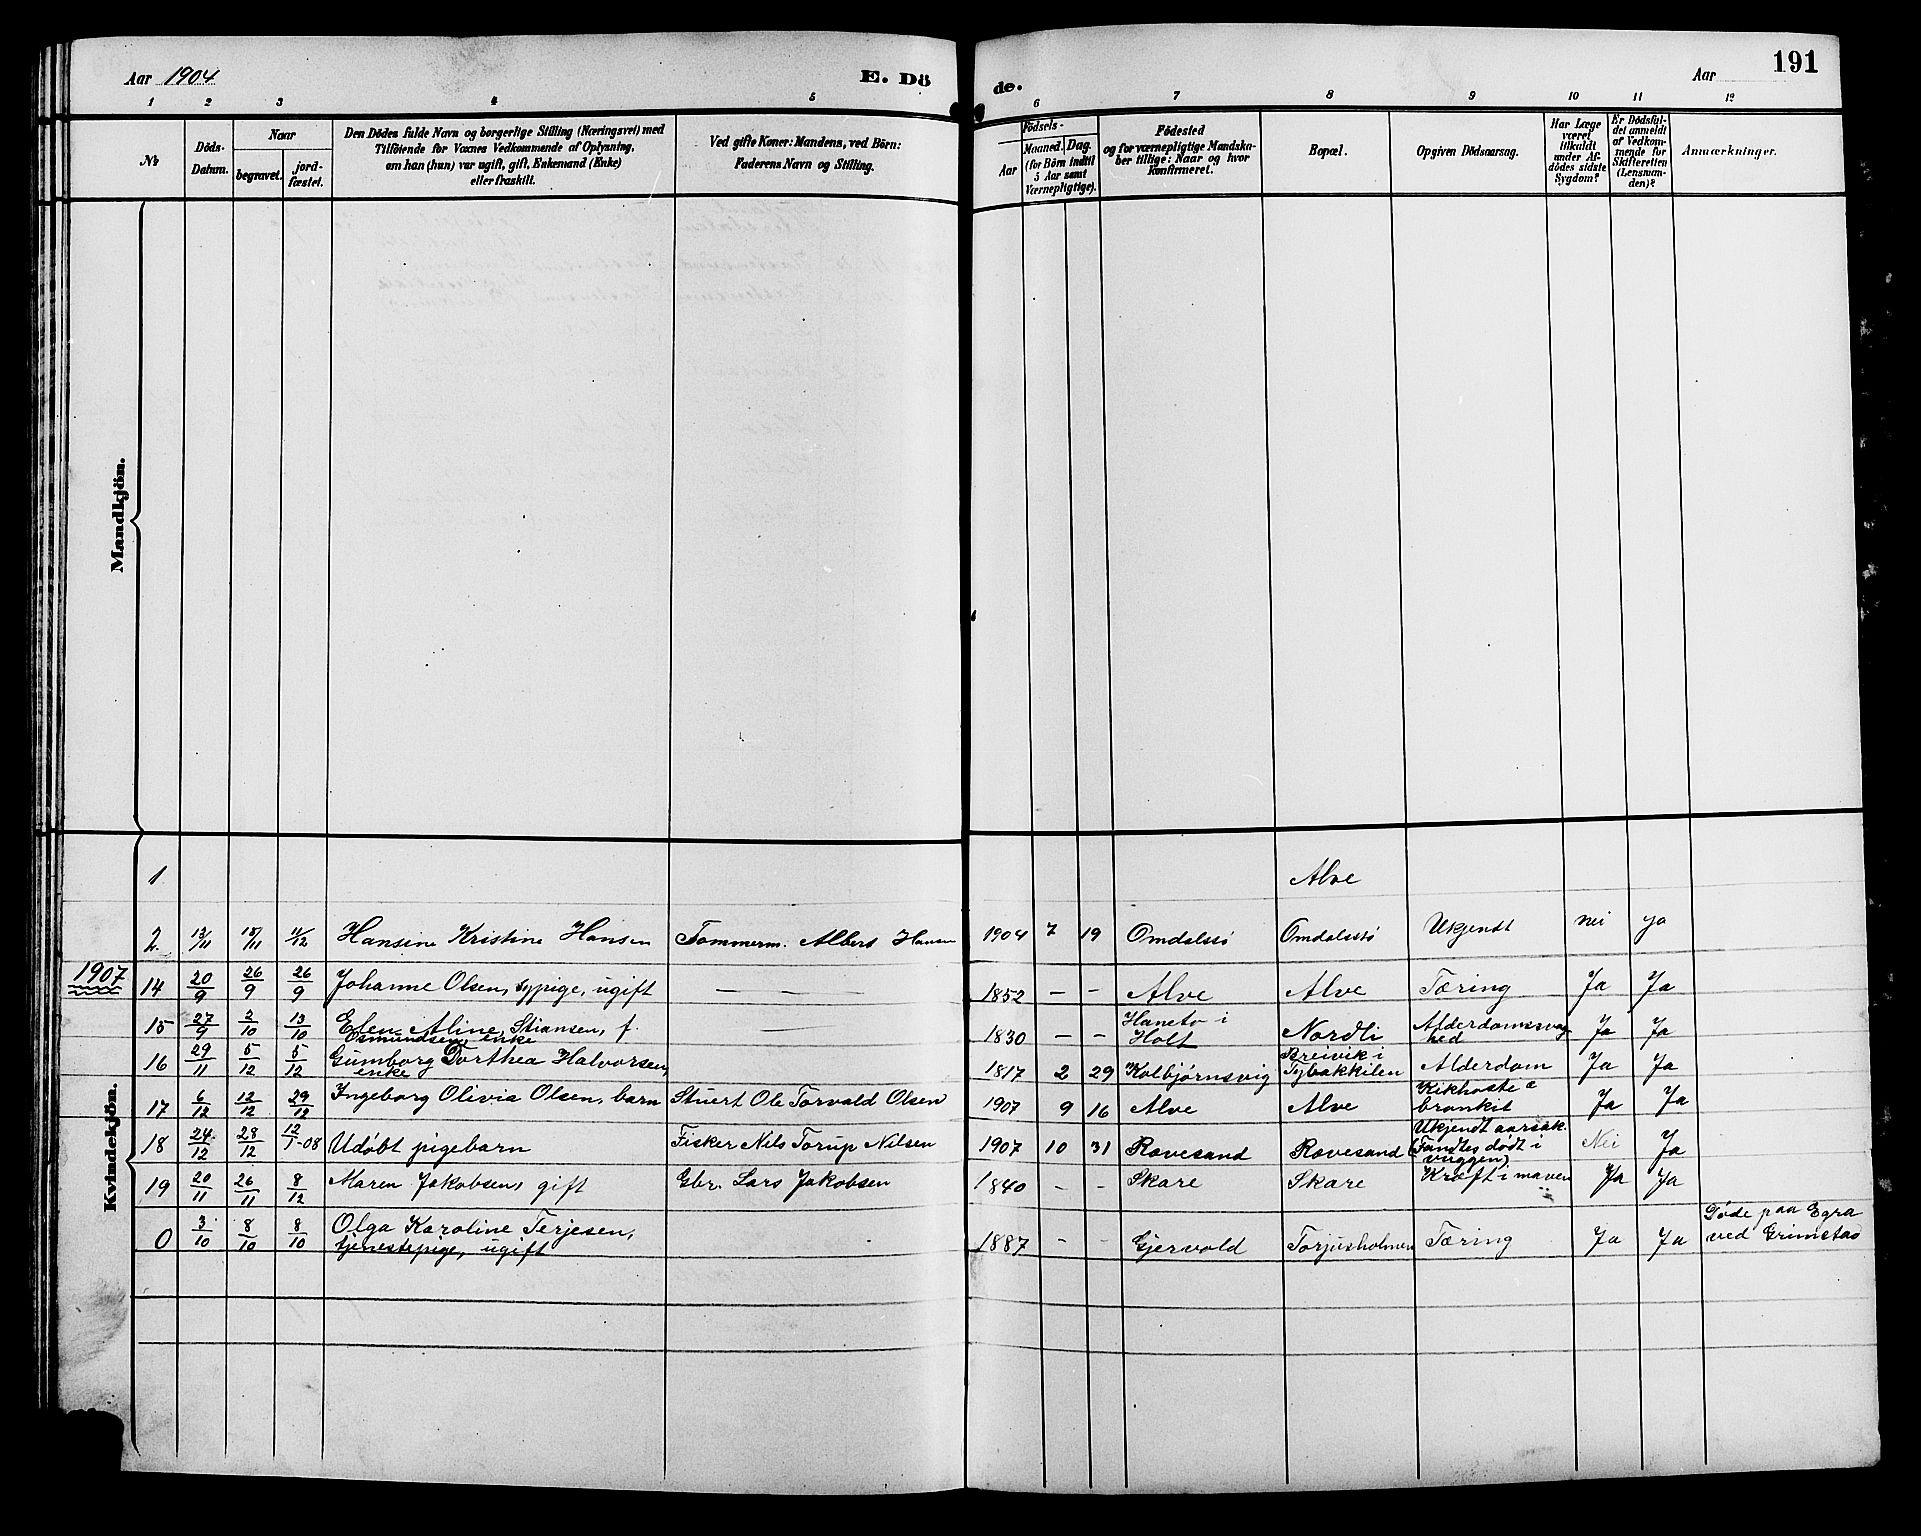 Aar 1904
E. Dö
de.
Aar
191
1 2 3 4 5 6 7 8 9 10 11 12
№
Döds-
Datum.
Naar
begravet.
jord-
fæstet.
Den Dödes fulde Navn og borgerlige Stilling (Næringsvei) med
Tilföiende for Voxnes Vedkommende af Oplysning,
om han (hun) var ugift, gift, Enkemand (Enke)
eller fraskilt.
Ved gifte Koner: Mandens, ved Börn:
Faderens Navn og Stilling.
Födsels-
Aar
Maaned. Dag.
(for Börn indtil
5 Aar samt
Værnepligtige).
Födested
og for værnepligtige Mandska-
ber tillige: Naar og hvor
konfirmeret.
Bopæl.
Opgiven Dödsaarsag.
Har Læge
været
tilkaldt
under Af-
dödes sidste
Sygdom?
Er Dödsfal-
det anmeldt
af Vedkom-
mende for
Skifteretten
(Lensman-
den)?
Anmærkninger.
Mandkjön.
Kvindekjön.
1 Alve
2. 13/11 15/11 11/12 Hansine Kristine Hansen Tommerm. Albert Hansen 1904 7 19 Omdalsstø Omdalsstø Ukjendt nei ja
1907
14 20/9 26/9 26/9 Johanne Olsen, sypige, ugift — — — 1852 — — Alve Alve Tæring Ja Ja
15 27/9 2/10 13/10 Elen Aline Stiansen, f.
Osmundsen, enke — — 1830 — — Haneto i
Holt Nordli Alderdomssvag
hed Ja Ja
16 29/11 5/12 5/12 Gumborg Dorthea Halvorsen,
enke 1817 2 29 Kolbjørnsvig Breivik i
Tybakkilen Alderdom Ja Ja
17 6/12 12/12 29/12 Ingeborg Olivia Olsen, barn Stuert Ole Torvald Olsen 1907 9 16 Alve Alve Kikhoste &
bronkit Ja Ja
18 24/12 28/12 12/1-08 Udøbt pigebarn Fisker Nils Torup Nilsen 1907 10 31 Rævesand Rævesand Ukjendt aarsak
(Fandtes dødt i
vuggen) Nei Ja
19 20/11 26/11 8/12 Maren Jakobsen, gift Gbr. Lars Jakobsen 1840 — — Skare Skare Kræft i maven Ja Ja
0 3/10 8/10 8/10 Olga Karoline Terjesen,
tjenestepige, ugift 1887 — — Gjervold Torjusholmen Tæring Ja Ja Døde paa Egra
ved Grimstad